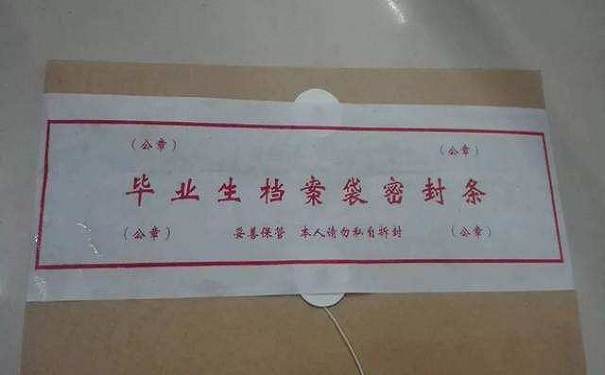 （公章） （公章）
毕业生档案袋密封条
（公章） 妥善保管 本人请勿私自拆封 （公章）